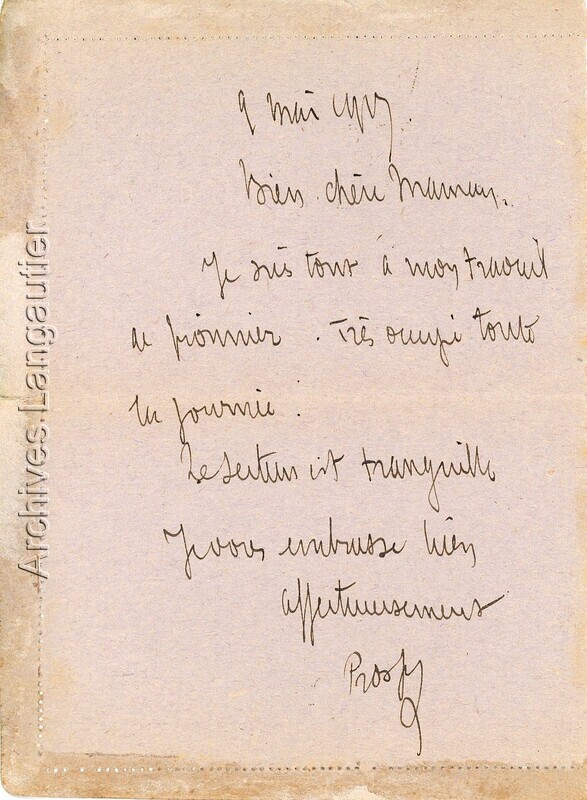 9 mai 1917.
Bien chère Maman.
Je suis tout à mon travail
de pionnier. Très occupé toute
la journée.
Le secteur est tranquille
Je vous embrasse bien
affectueusement
Prosper
Archives Langautier